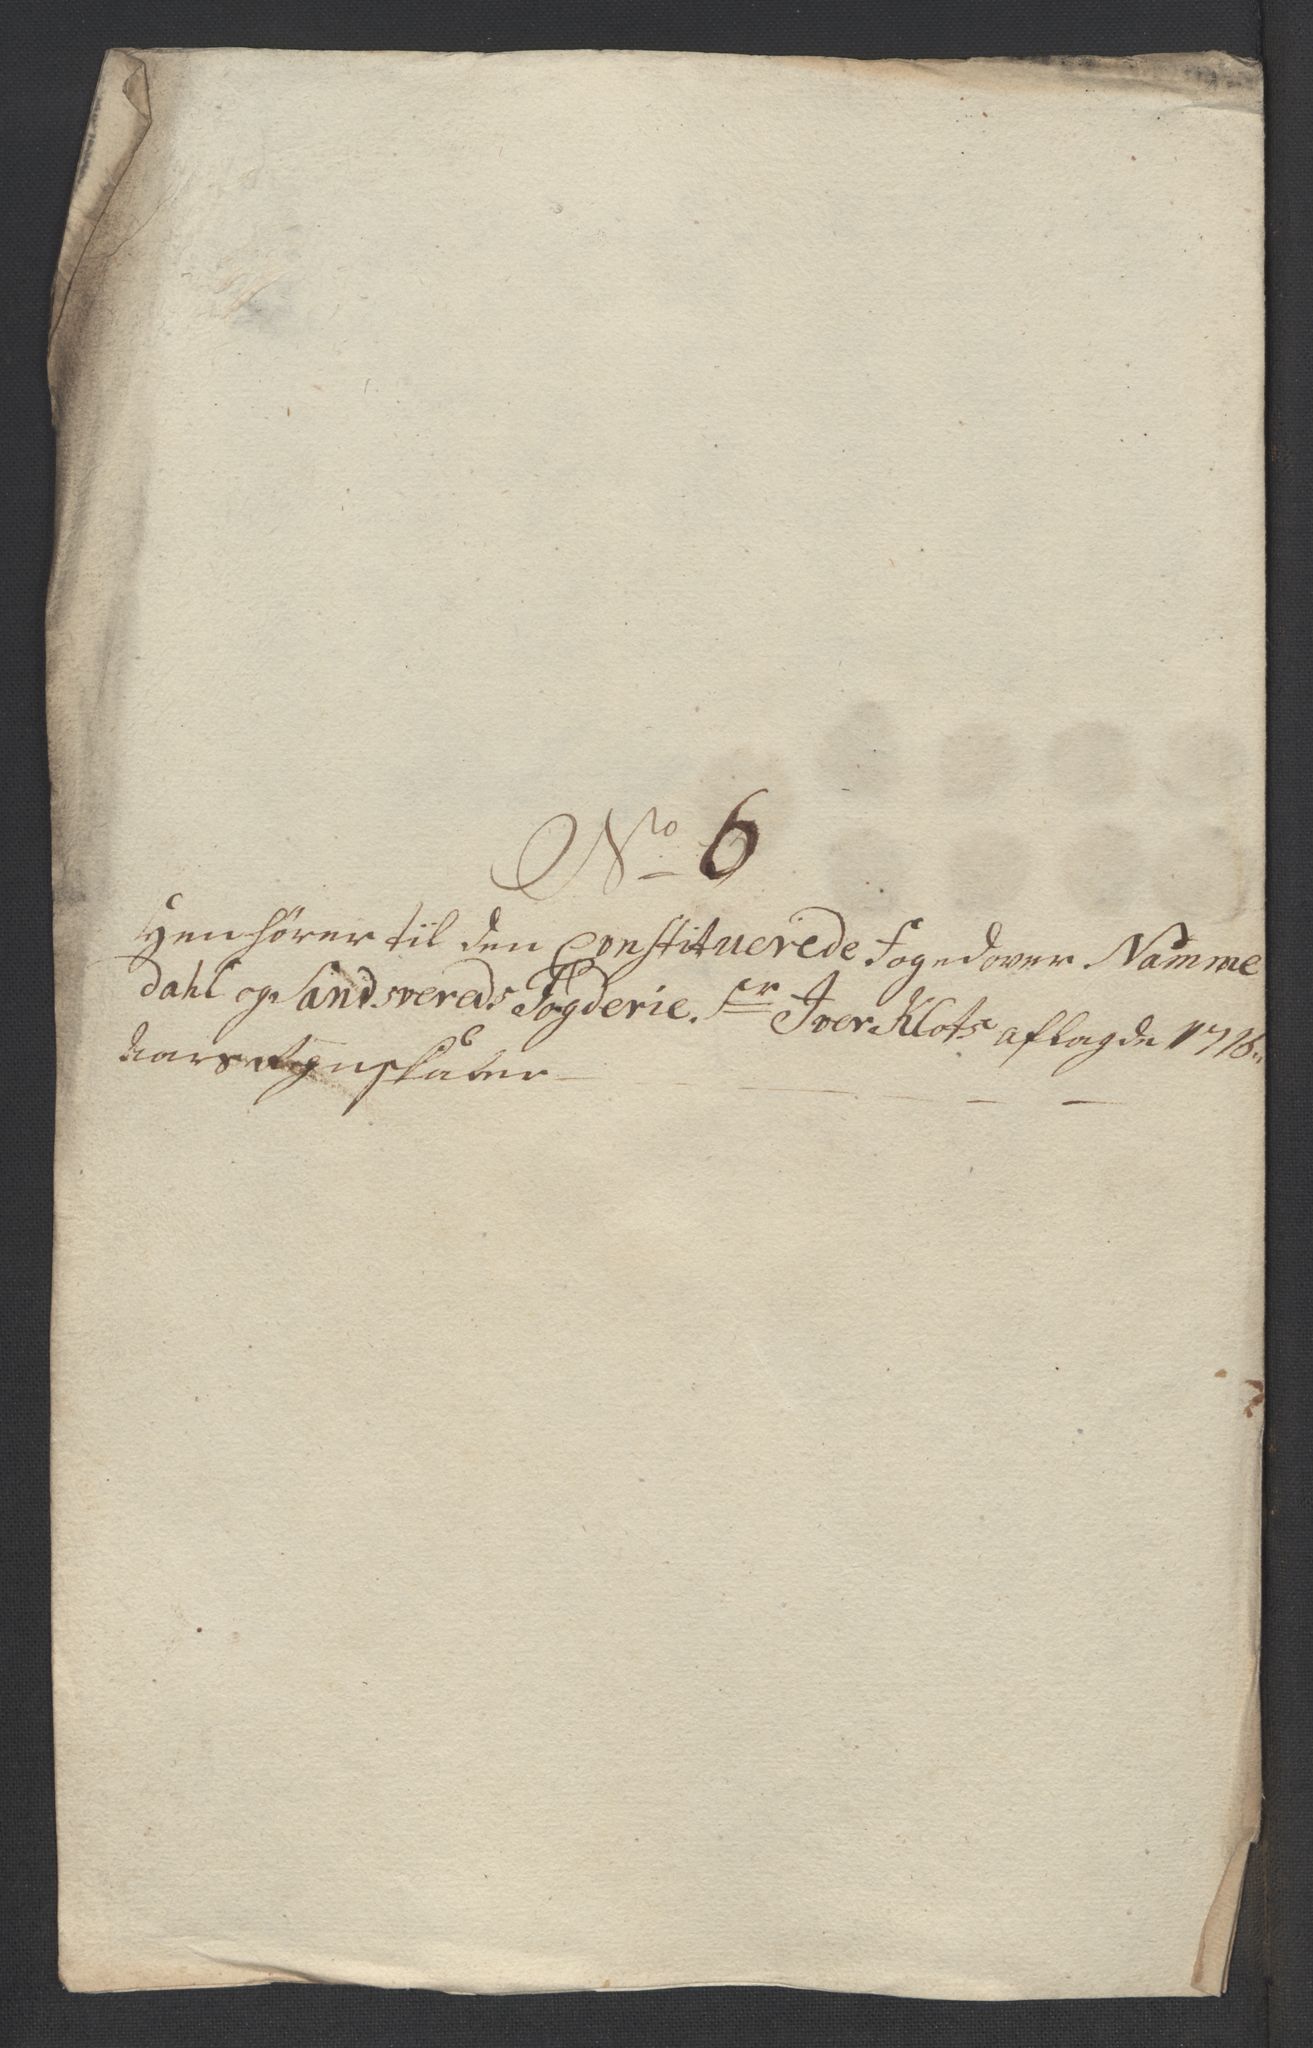 No 6
Henhører til den Constituerede foged over Namme
dahl og Sandsverds Fogderie. Sr Iver Klots aflagde 1716
aars Regenskaber